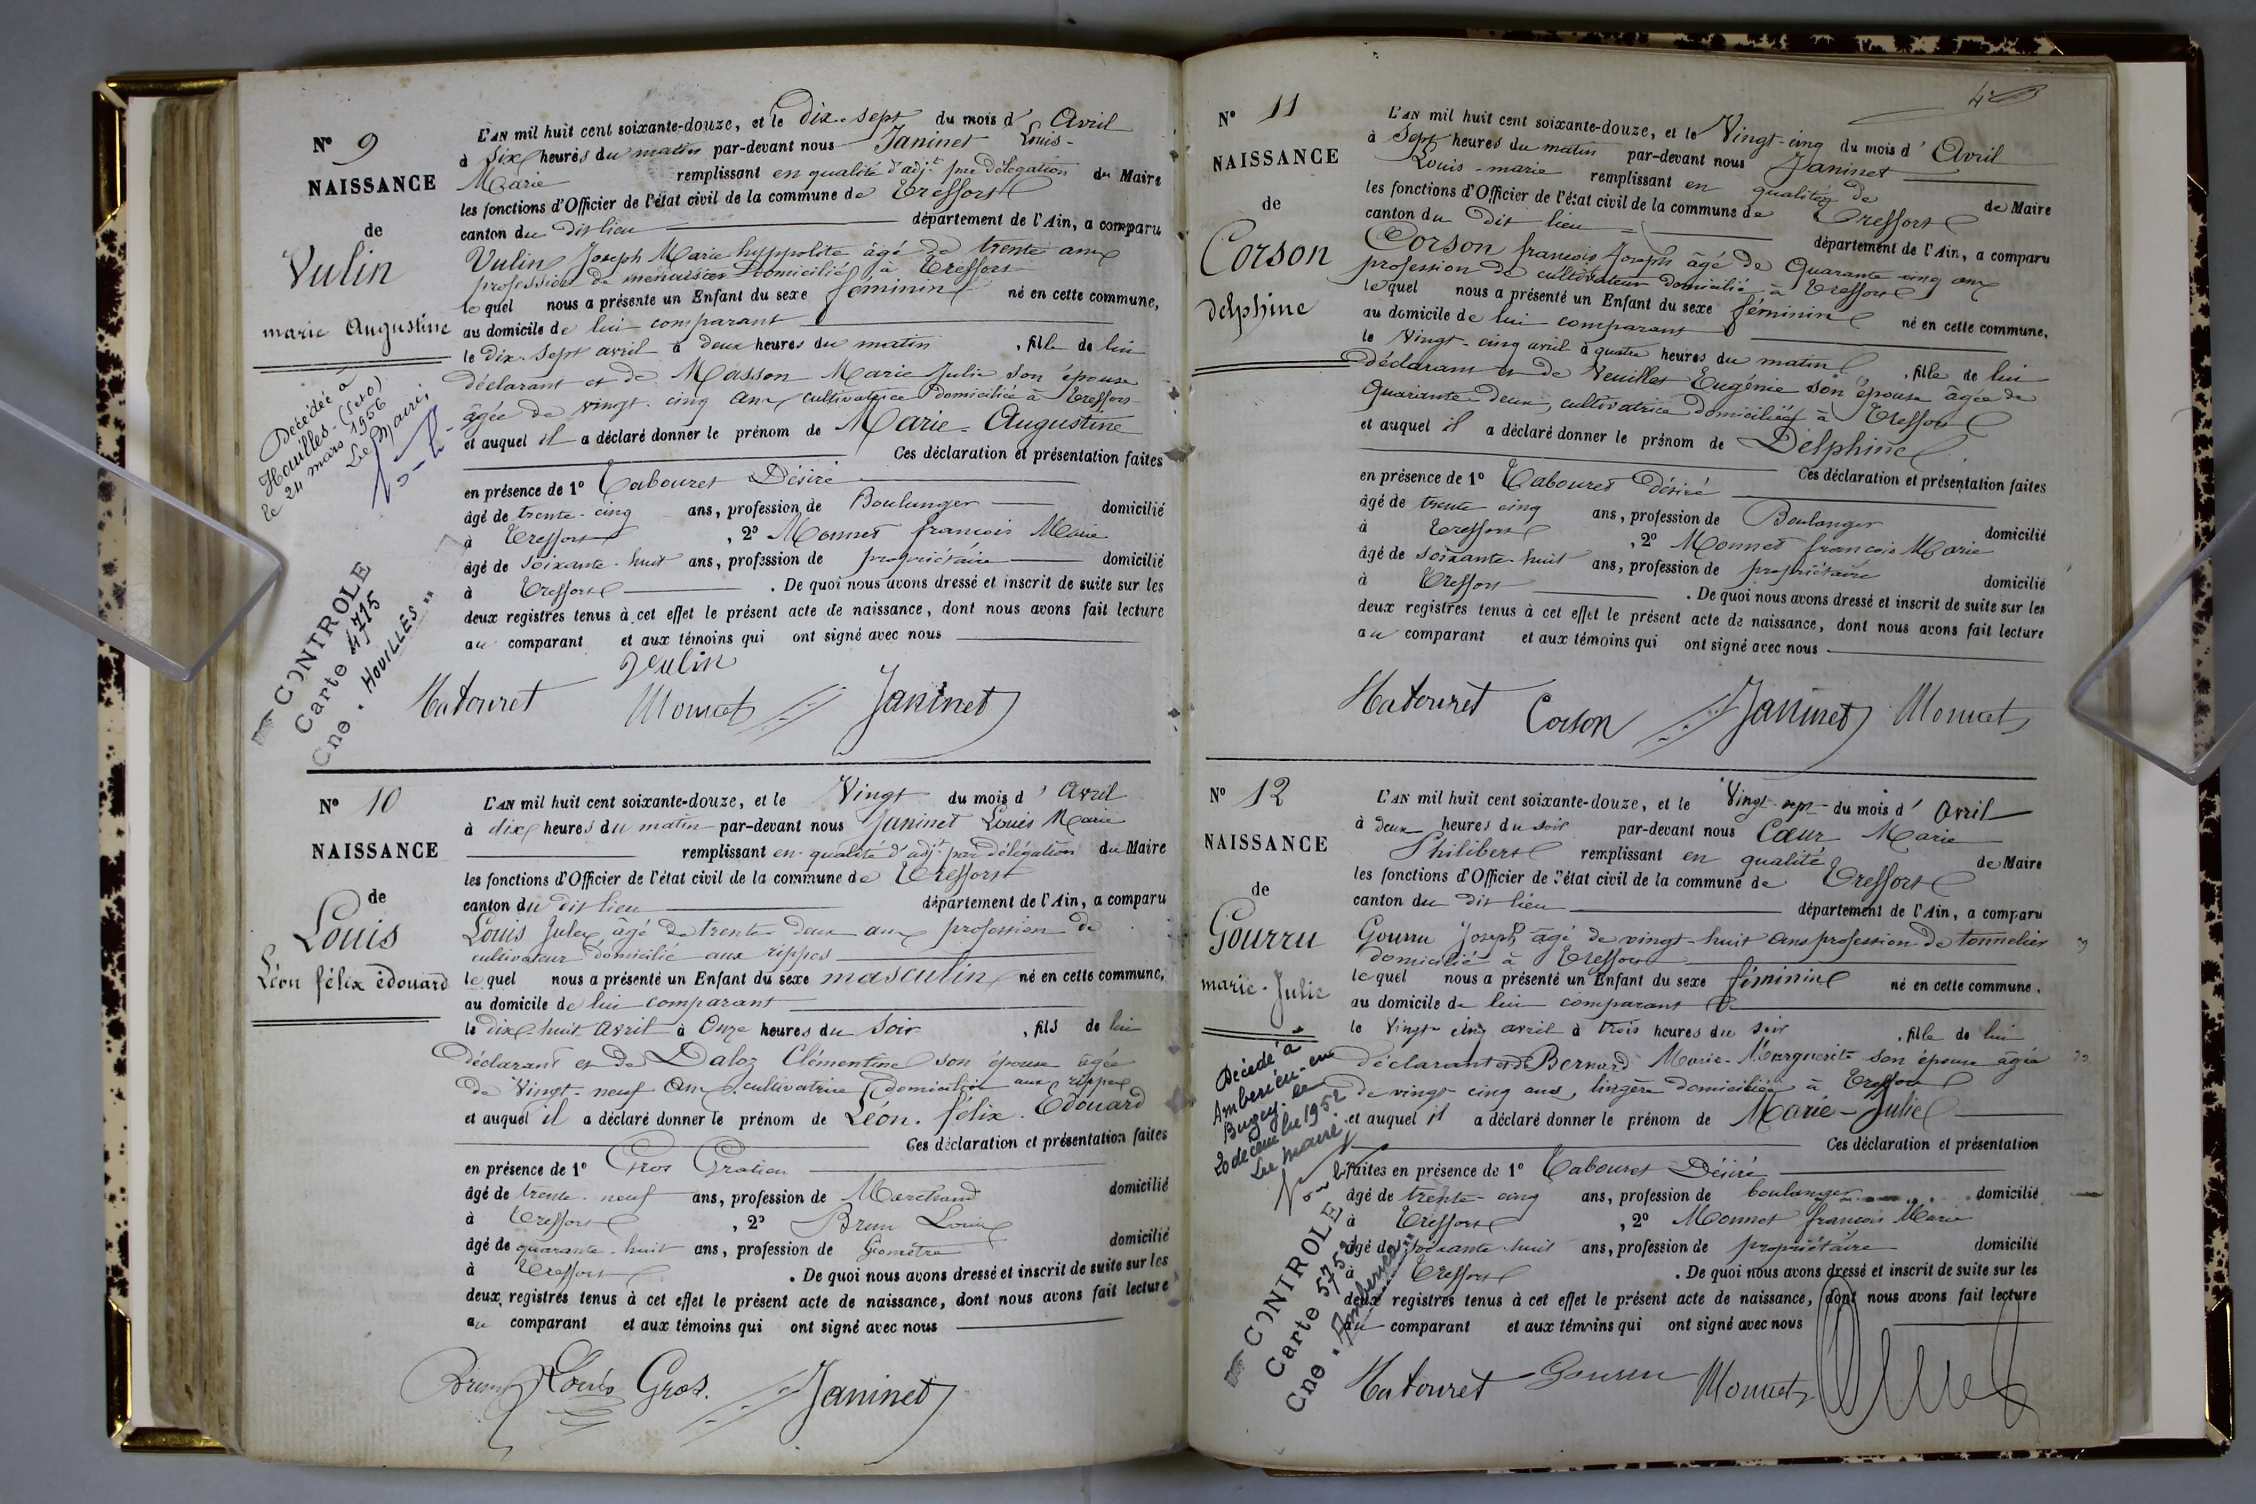 N° 9
NAISSANCE
de
Vulin
marie Augustine
Décédée à
Houilles (S et O)
le 24 mars 1956
Le Maire,
CONTROLE
Carte 4715
Cne. HOUILLES "
L'AN mil huit cent soixante-douze, et le Dix-sept du mois d' Avril
à dix heures du matin par-devant nous Janinet Louis-
Marie remplissant en qualité d'adjt par délégation du Maire
les fonctions d'Officier de l'état civil de la commune de Treffort
canton du dit lieu département de l'Ain, a comparu
Vulin Joseph Marie hyppolite âgé de trente ans
profession de menuisier domicilié à Treffort
lequel nous a présenté un Enfant du sexe féminin né en cette commune,
au domicile de lui comparant
le dix-sept avril à deux heures du matin, fille de lui
déclarant et de Masson Marie Julie son épouse
âgée de vingt-cinq ans cultivatrice domiciliée à Treffort
et auquel il a déclaré donner le prénom de Marie-Augustine
Ces déclaration et présentation faites
en présence de 1° Tabouret Désiré
âgé de trente-cinq ans, profession de Boulanger domicilié
à Treffort, 2° Monnet francois Marie
âgé de soixante-huit ans, profession de propriétaire domicilié
à Treffort. De quoi nous avons dressé et inscrit de suite sur les
deux registres tenus à cet effet le présent acte de naissance, dont nous avons fait lecture
au comparant et aux témoins qui ont signé avec nous
Vulin
Tabouret Monnet Janinet
N° 10
NAISSANCE
de
Louis
Léon félix édouard
L'AN mil huit cent soixante-douze, et le Vingt du mois d' Avril
à dix heures du matin par-devant nous Janinet Louis Marie
remplissant en qualité d'adjt par délégation du Maire
les fonctions d'Officier de l'état civil de la commune de Treffort
canton du dit lieu département de l'Ain, a comparu
Louis Jules âgé de trente deux ans profession de
cultivateur domicilié aux rippes
lequel nous a présenté un Enfant du sexe masculin né en cette commune,
au domicile de lui comparant
le dix-huit Avril à Onze heures du Soir, fils de lui
déclarant et de Daloz Clémentine son épouse âgée
de Vingt-neuf ans cultivatrice domiciliée aux rippes
et auquel il a déclaré donner le prénom de Léon. félix. Edouard
Ces déclaration et présentation faites
en présence de 1° Gros Gratien
âgé de trente-neuf ans, profession de Marchand domicilié
à Treffort, 2° Brun Louis
âgé de quarante-huit ans, profession de Géomètre domicilié
à Treffort. De quoi nous avons dressé et inscrit de suite sur les
deux registres tenus à cet effet le présent acte de naissance, dont nous avons fait lecture
au comparant et aux témoins qui ont signé avec nous
Brun Louis Gros. Janinet
N° 11
NAISSANCE
de
Corson
delphine
L'AN mil huit cent soixante-douze, et le Vingt-cinq du mois d' Avril
à Sept heures du matin par-devant nous Janinet
Louis-marie remplissant en qualité de de Maire
les fonctions d'Officier de l'état civil de la commune de Treffort
canton du dit lieu département de l'Ain, a comparu
Corson francois Joseph âgé de Quarante cinq ans
profession de cultivateur domicilié à Treffort
lequel nous a présenté un Enfant du sexe féminin né en cette commune.
au domicile de lui comparant
le Vingt-cinq avril à quatre heures du matin, fille de lui
déclarant et de Veuillet Eugénie son épouse âgée de
Quarante deux, cultivatrice domiciliée à Treffort
et auquel il a déclaré donner le prénom de Delphine
Ces déclaration et présentation faites
en présence de 1° Tabouret désiré
âgé de trente cinq ans, profession de Boulanger domicilié
à Treffort, 2° Monnet francois Marie
âgé de soixante-huit ans, profession de propriétaire domicilié
à Treffort. De quoi nous avons dressé et inscrit de suite sur les
deux registres tenus à cet effet le présent acte de naissance, dont nous avons fait lecture
au comparant et aux témoins qui ont signé avec nous
Tabouret Corson Janinet Monnet
N° 12
NAISSANCE
de
Gourru
marie-Julie
Décédé à
Amberieu-en
Bugey le
20 decembre 1952
Le maire.
CONTROLE
Carte 5753
Cne. Amberieu "
L'AN mil huit cent soixante-douze, et le Vingt-sept du mois d' Avril
à deux heures du soir par-devant nous Cœur Marie
Philibert remplissant en qualité de Maire
les fonctions d'Officier de l'état civil de la commune de Treffort
canton du dit lieu département de l'Ain, a comparu
Gourru Joseph âgé de vingt-huit ans profession de tonnelier
domicilié à Treffort
lequel nous a présenté un Enfant du sexe féminin né en cette commune.
au domicile de lui comparant
le Vingt-cinq avril à trois heures du soir, fille de lui
déclarant et de Bernard Marie-Marguerite son épouse âgée
de vingt-cinq ans, lingère domiciliée à Treffort
et auquel il a déclaré donner le prénom de Marie-Julie
Ces déclaration et présentation
faites en présence de 1° Tabouret Désiré
âgé de trente-cinq ans, profession de boulanger domicilié
à Treffort, 2° Monnet francois Marie
âgé de soixante-huit ans, profession de propriétaire domicilié
à Treffort. De quoi nous avons dressé et inscrit de suite sur les
deux registres tenus à cet effet le présent acte de naissance, dont nous avons fait lecture
au comparant et aux témoins qui ont signé avec nous
Tabouret Gourru Monnet